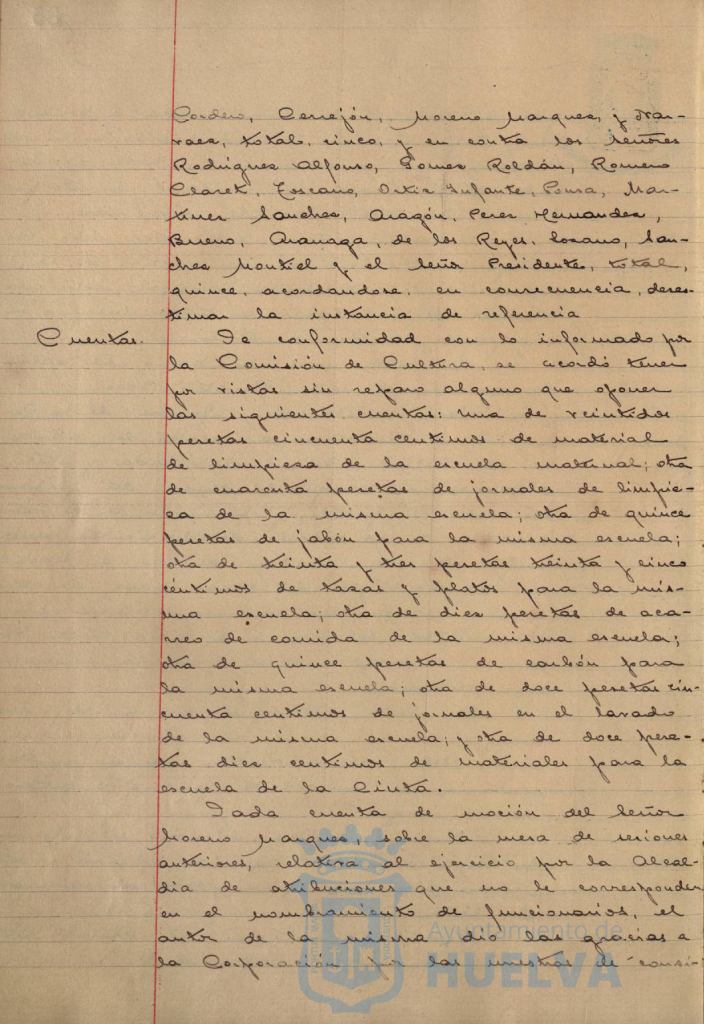 Cordero, Cerrejón, Moreno Marquez, y Nar-
vaez, total, cinco, y en contra los Señores
Rodríguez Alfonso, Gomez Roldán, Romero
Claret, Toscano, Ortiz Infante, Ponsa, Mar-
tinez Sanchez, Aragón, Perez Hernandez,
Bueno, Aranaga, de los Reyes, Lozano, San-
chez Montiel y el Señor Presidente, total,
quince, acordandose, en consecuencia, deses-
timar la instancia de referencia
Cuentas.
De conformidad con lo informado por
la Comisión de Cultura, se acordó tener
por vistas sin reparo alguno que oponer
las siguientes cuentas: una de veintidos
pesetas cincuenta centimos de material
de limpieza de la escuela maternal; otra
de cuarenta pesetas de jornales de limpie-
za de la misma escuela; otra de quince
pesetas de jabón para la misma escuela;
otra de treinta y tres pesetas treinta y cinco
céntimos de tazas y platos para la mis-
ma escuela; otra de diez pesetas de aca-
rreo de comida de la misma escuela;
otra de quince pesetas de carbón para
la misma escuela; otra de doce pesetas cin-
cuenta centimos de jornales en el lavado
de la misma escuela; y otra de doce pese-
tas diez centimos de materiales para la
escuela de la Cinta.
Dada cuenta de moción del Señor
Moreno Marquez, sobre la mesa de sesiones
anteriores, relativa al ejercicio por la Alcal-
dia de atribuciones que no le corresponden
en el nombramiento de funcionarios, el
autor de la misma dió las gracias a
la Corporación por las muestras de consi-
Ayuntamiento de
HUELVA